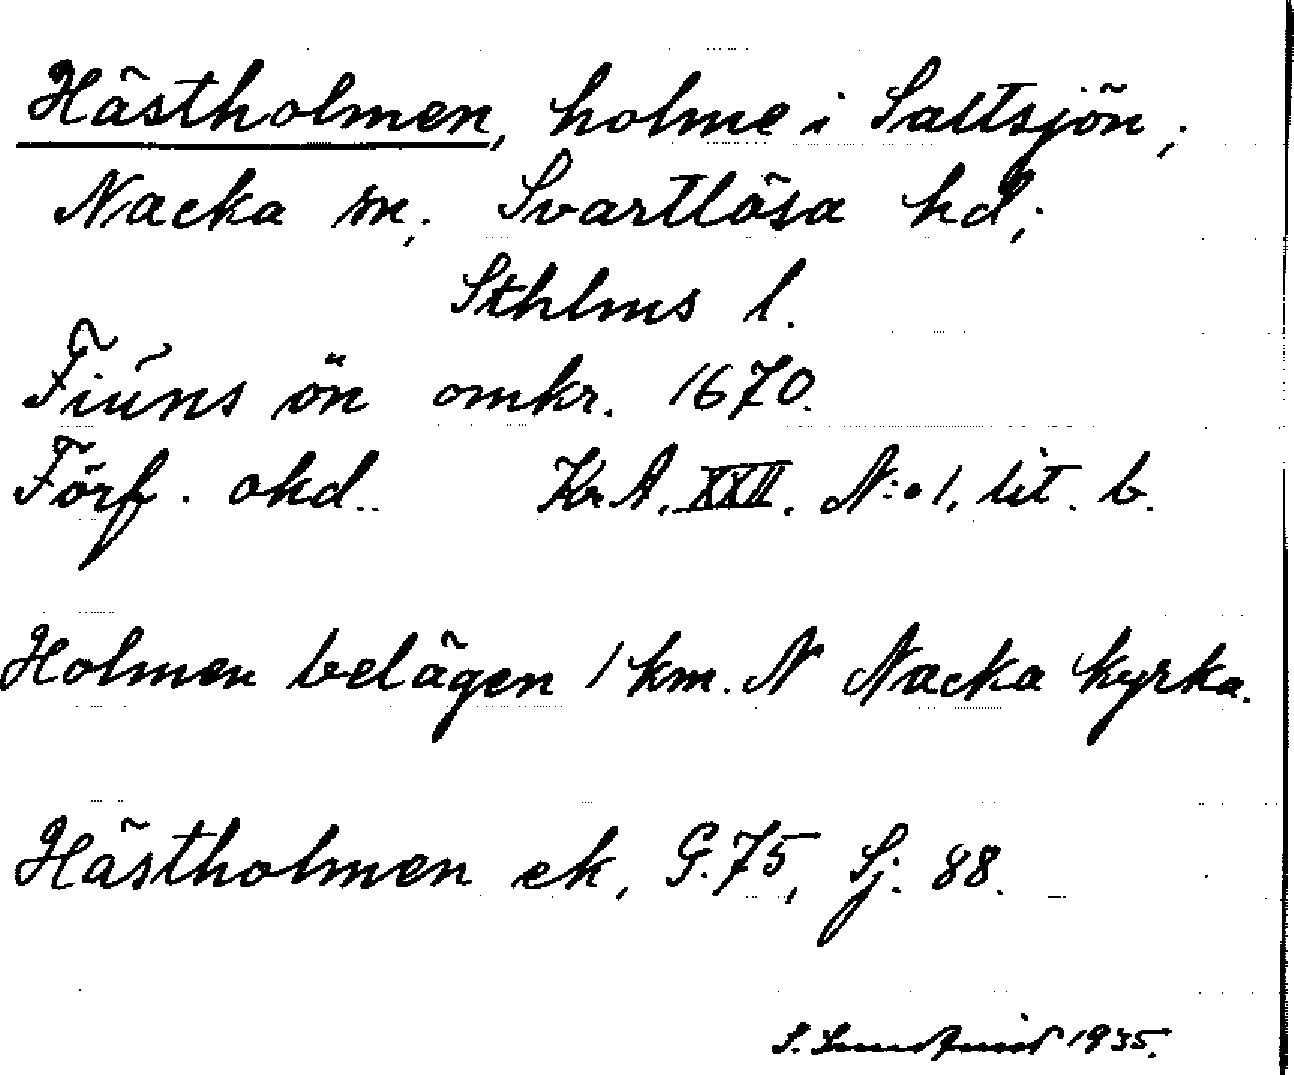 Hästholmen, holme i Saltsjön,;
Nacka sn,; Svartlösa hd,;
Sthlms l.
Fiüns ön omkr. 1670.
Förf. okd. Kr.A. XXII. N:o 1, lit. b.
Holmen belägen 1 km. N Nacka kyrka.
Hästholmen ek, G. 75, Sj. 88.
S. Lundquist 1935.